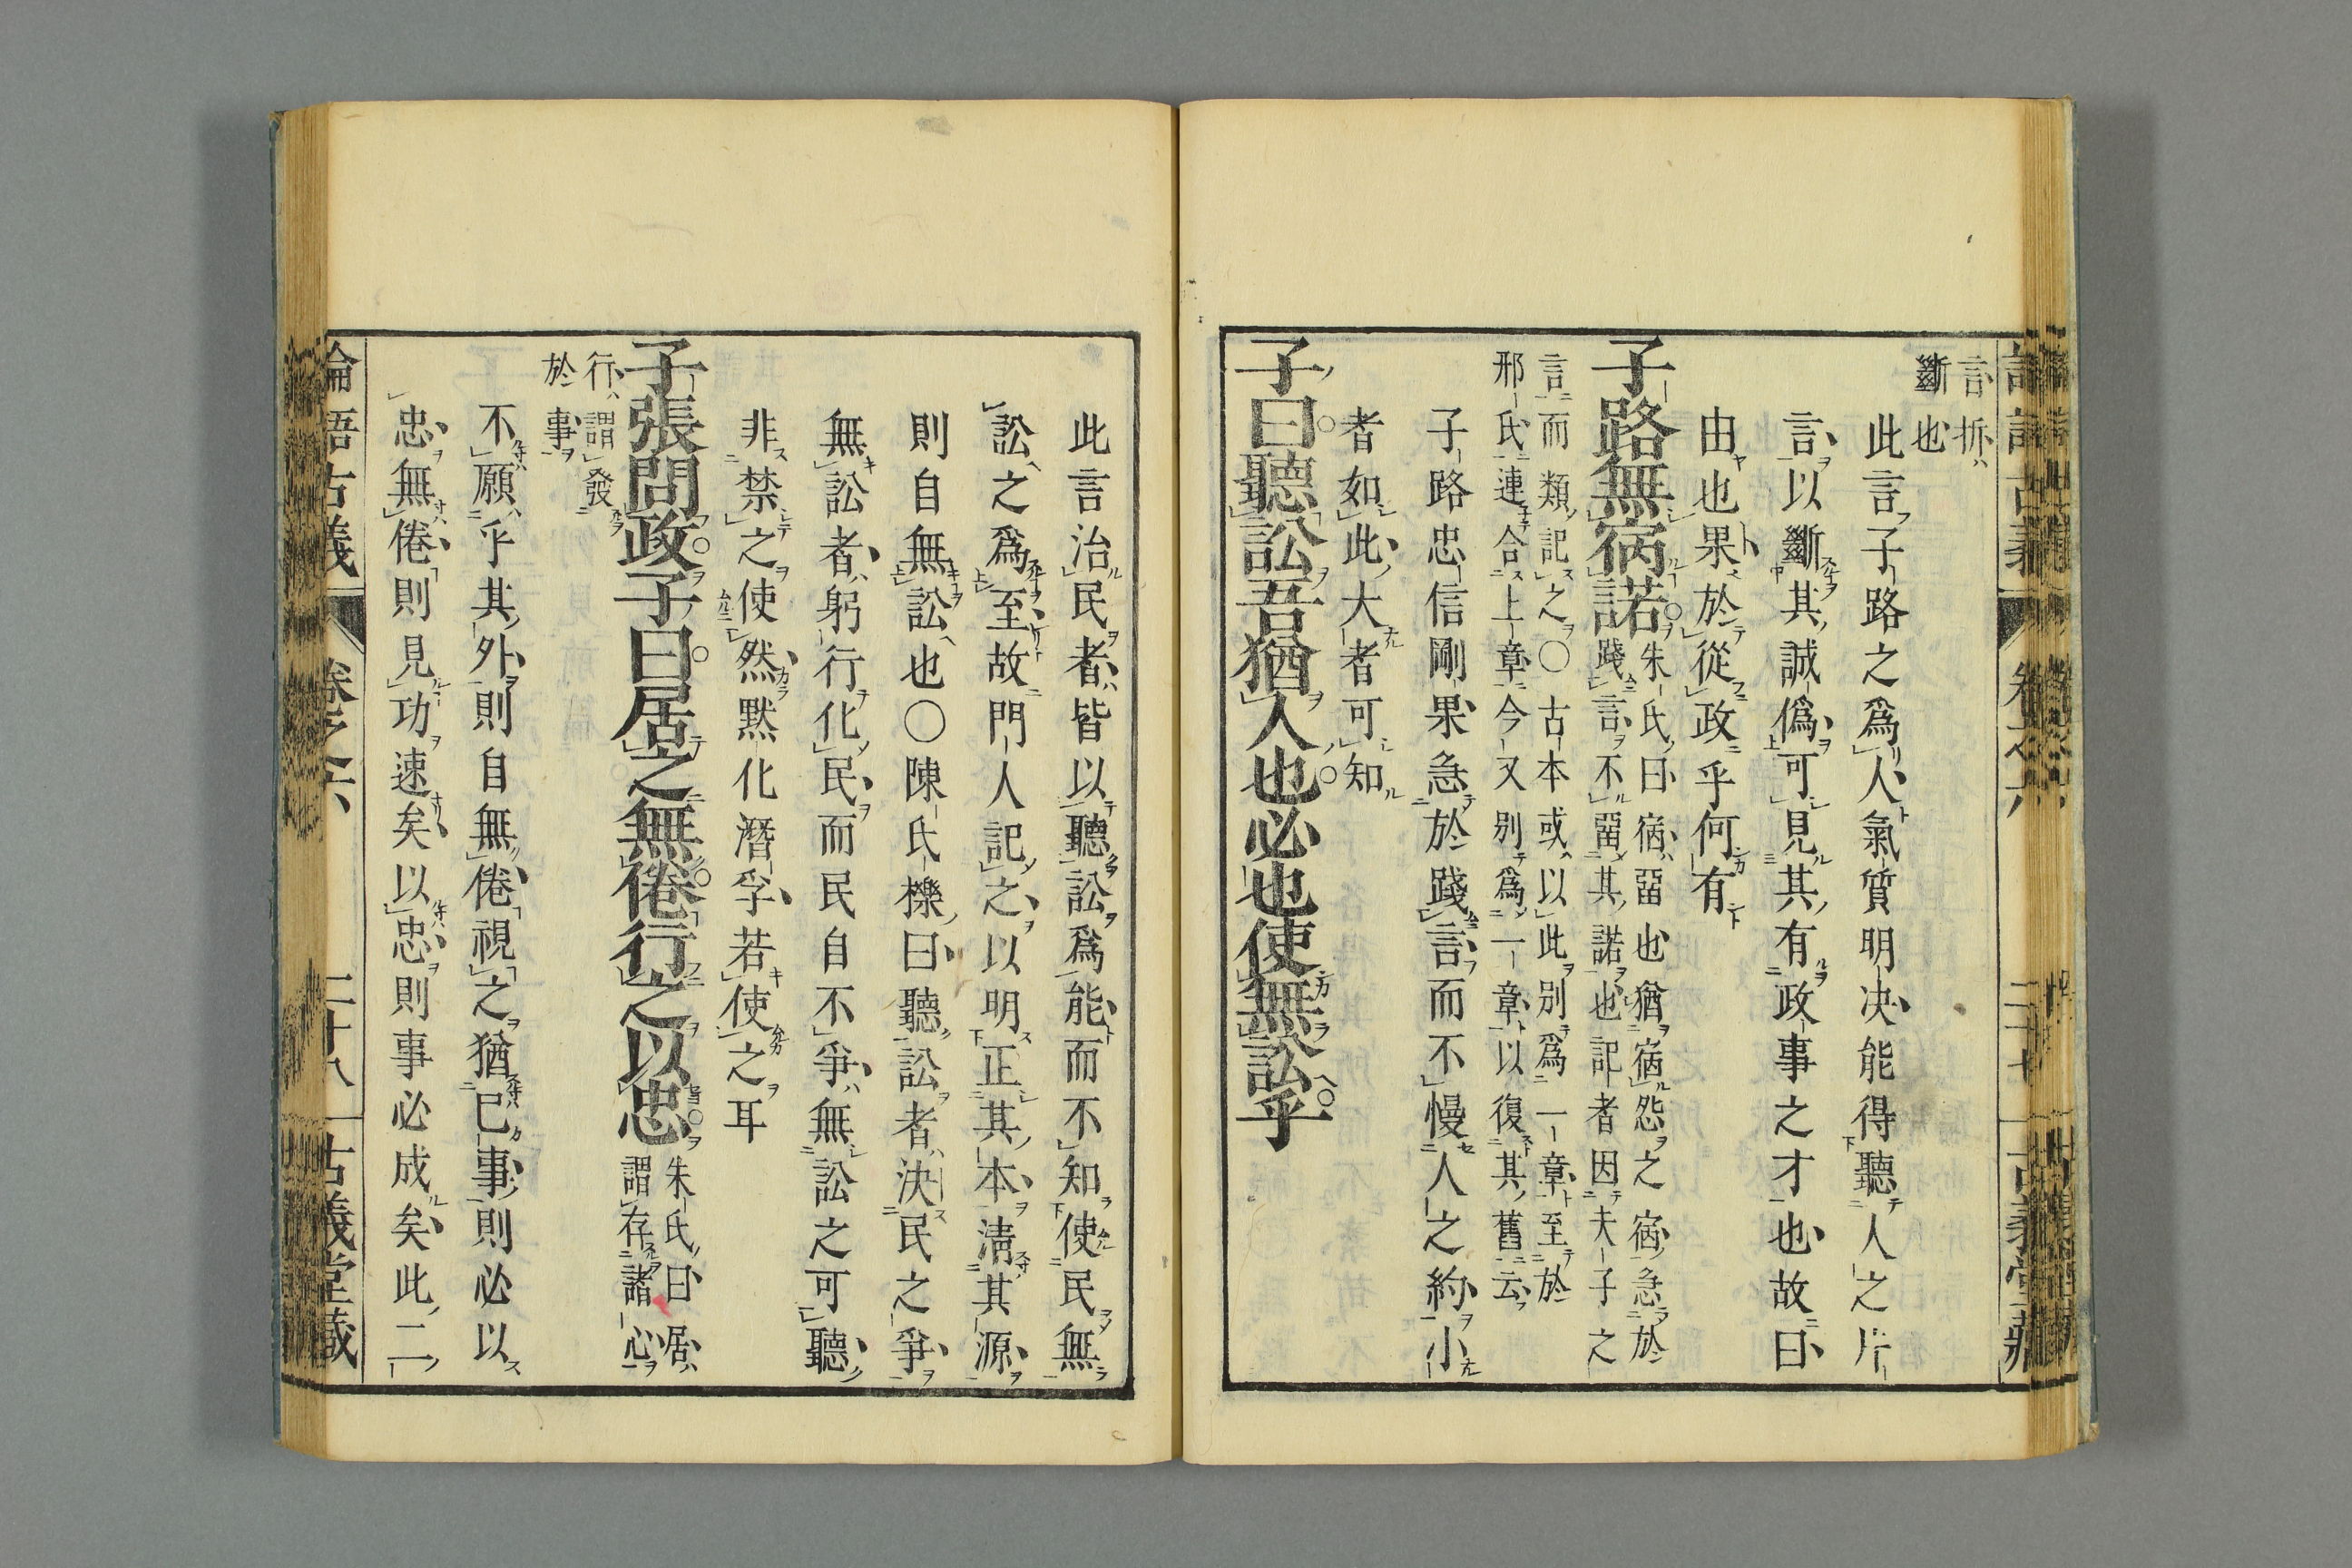 言折
斷也
此言子路之爲人氣質明决能得聽人之片
言以斷其誠僞可見其有政事之才也故曰
由也果於從政乎何有
子路無宿諾
朱氏曰宿畱也猶宿怨之宿急於
踐言不畱其諾也記者因夫子之
言而類記之〇古本或以此別爲一章至於
邢氏連合上章今又別爲一章以復其舊云
子路忠信剛果急於踐言而不慢人之約小
者如此大者可知
子曰聽訟吾猶人也必也使無訟乎
此言治民者皆以聽訟爲能而不知使民無
訟之爲至故門人記之以明正其本淸其源
則自無訟也〇陳氏櫟曰聽訟者決民之爭
無訟者躬行化民而民自不爭無訟之可聽
非禁之使然黙化潛孚若使之耳
子張問政子曰居之無倦行之以忠
朱氏曰居
謂存諸心
行謂發
於事
不願乎其外則自無倦視之猶己事則必以
忠無倦則見功速矣以忠則事必成矣此二
論語古義 卷之六 二十八 古義堂藏